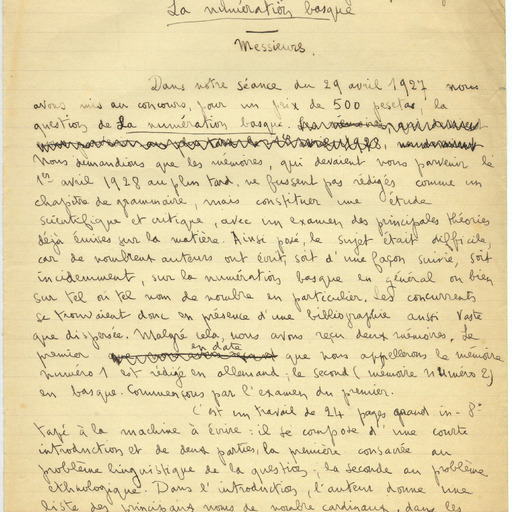 La numération basque
Messieurs,
Dans notre séance du 29 avril 1927 nous
avons mis au concours, pour un prix de 500 pesetas, la
question de La numération basque.
Nous demandions que les mémoires, qui devaient nous parvenir le
1er avril 1928 au plus tard, ne fussent pas rédigés comme un
chapitre de grammaire, mais constituer une étude
scientifique et critique, avec un examen des principales théories
déjà émises sur la matière. Ainsi posé, le sujet était difficile,
car de nombreux auteurs ont écrit, soit d'une façon suivie, soit
incidemment, sur la numération basque en général ou bien
sur tel ou tel nom de nombre en particulier. Les concurrents
se trouvaient donc en présence d'une bibliographie aussi vaste
que dispersée. Malgré cela, nous avons reçu deux mémoires. Le
premier en date que nous appellerons le mémoire
numéro 1 est rédigé en allemand; le second (mémoire numéro 2)
en basque. Commençons par l'examen du premier.
C'est un travail de 24 pages grand in-8°
tapé à la machine à écrire: il se compose d'une courte
introduction et de deux parties, la première consacrée au
problème linguistique de la question, la seconde au problème
ethnologique. Dans l'introduction, l'auteur donne une
liste des principaux noms de nombre cardinaux, dans les